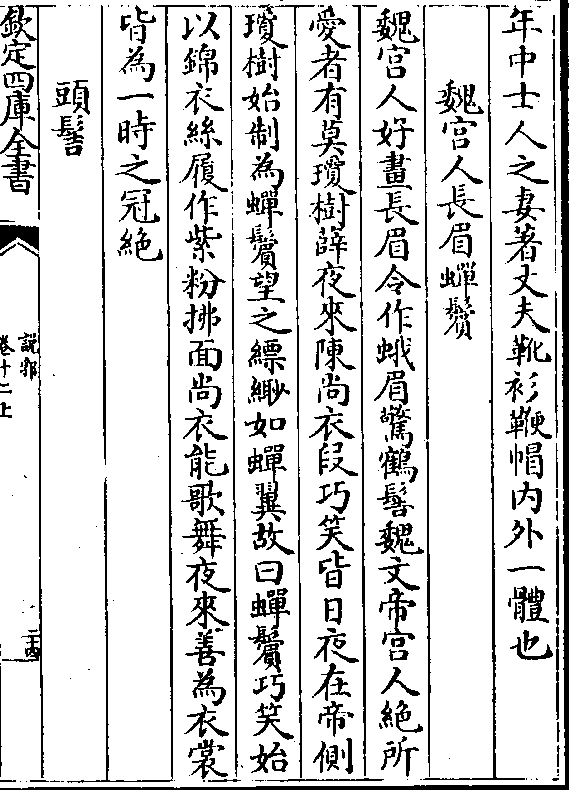 年中士人之妻著丈夫靴衫鞭帽内外一體也
魏宫人長眉蟬鬢
魏宫人好畫長眉令作蛾眉驚鶴髻魏文帝宫人絶所
愛者有莫瓊樹薛夜來陳尚衣段巧笑皆日夜在帝側
瓊樹始制為蟬鬢望之縹緲如蟬翼故曰蟬鬢巧笑始
以錦衣絲履作紫粉拂面尚衣能歌舞夜來善為衣裳
皆為一時之冠絶
頭髻
欽定四庫全書
說郛
卷十二上
二十四